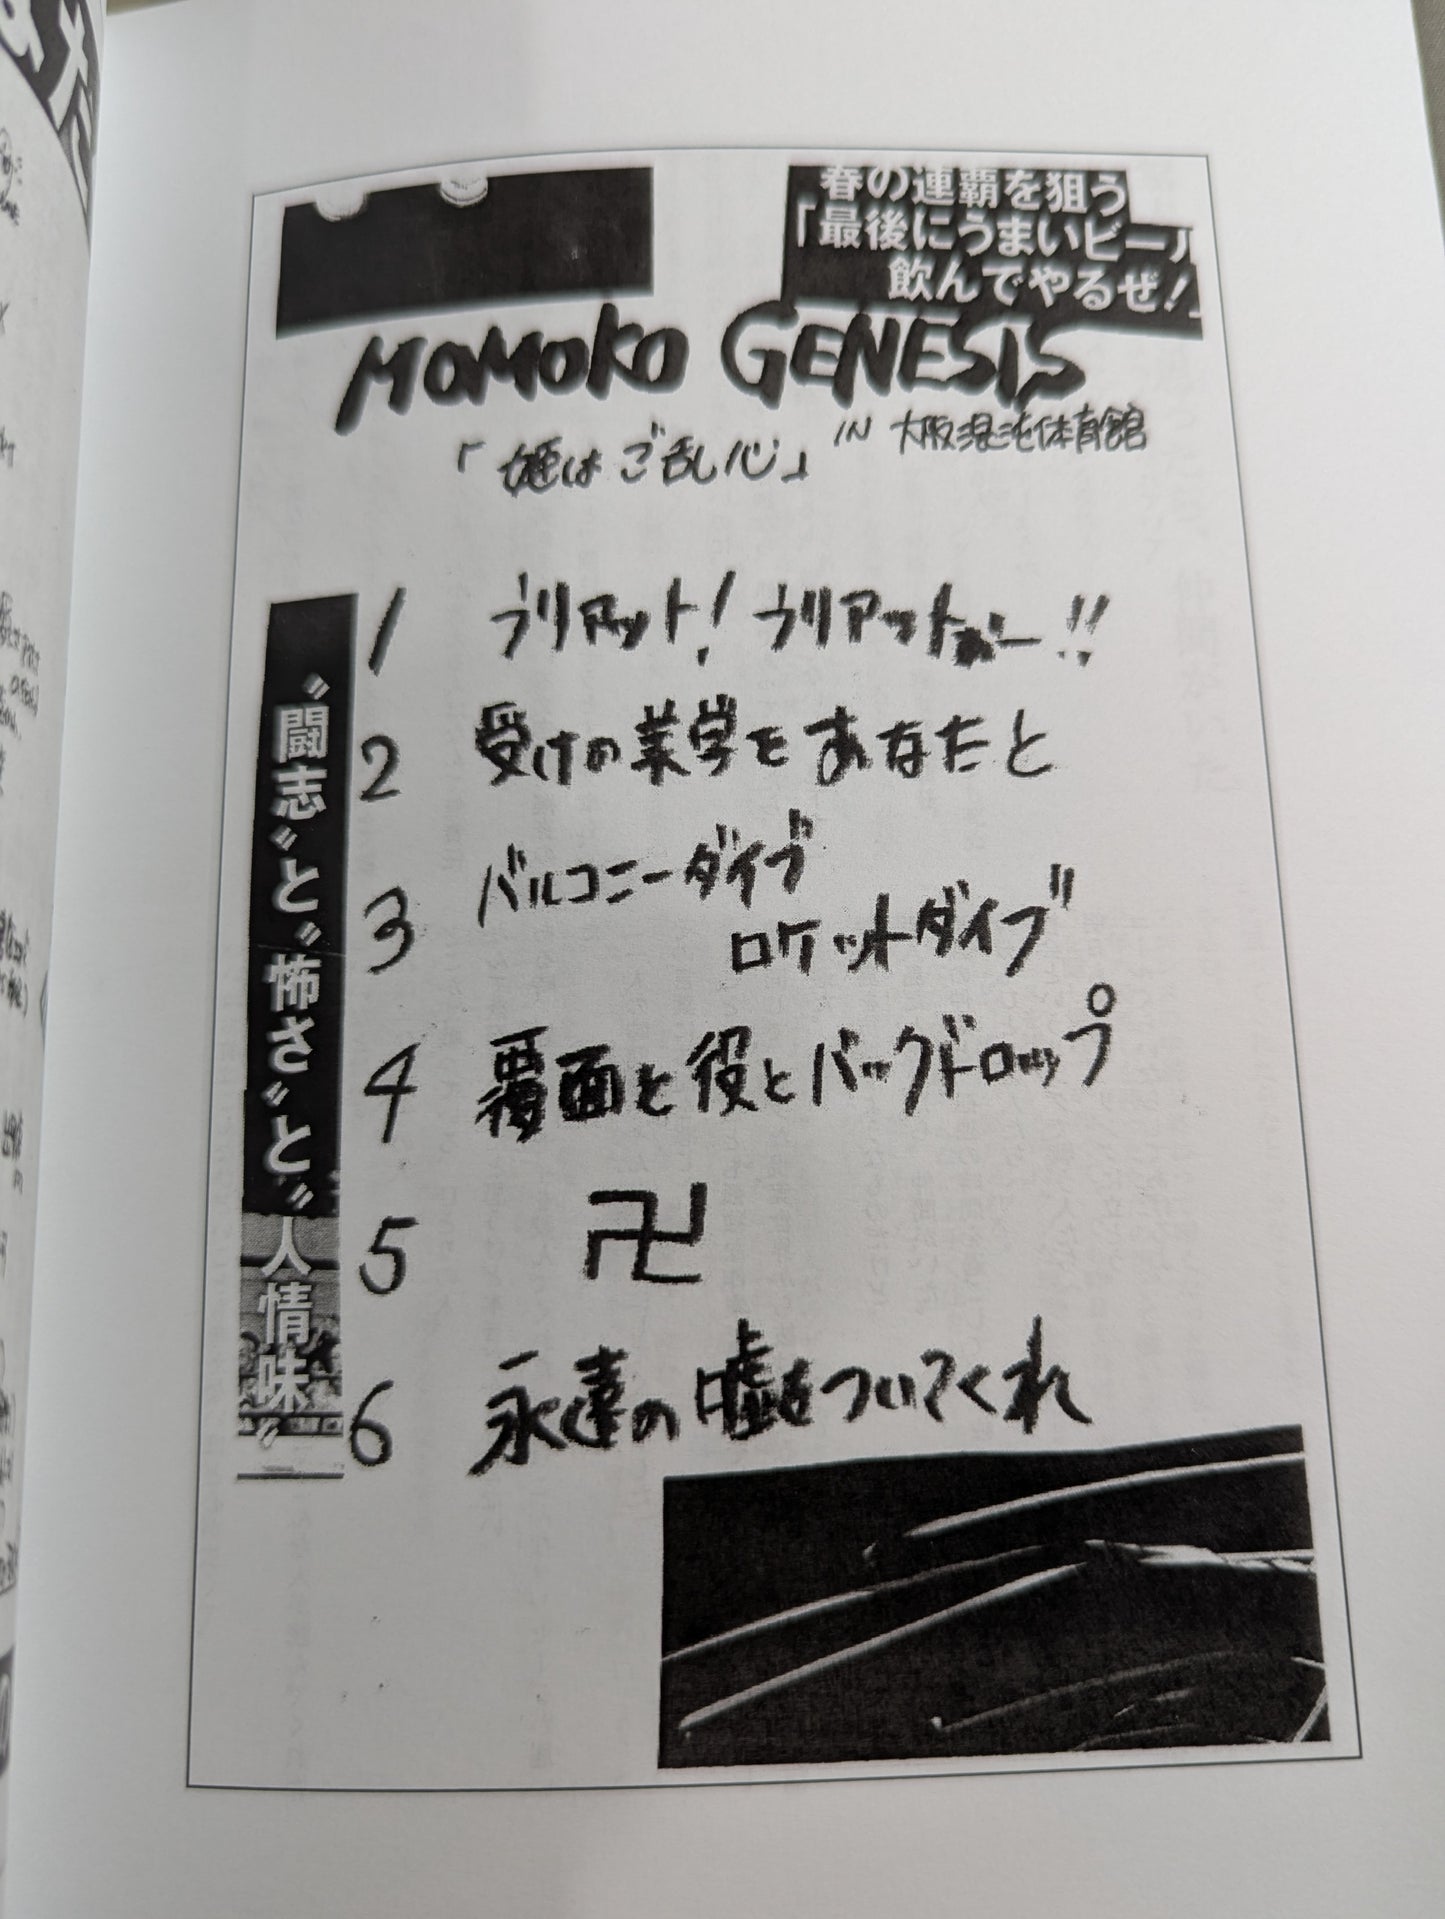 春の連覇を狙う
「最後にうまいビール
飲んでやるぜ!」
MOMOKO GENESIS
「姫はご乱心」
IN 大阪混沌体育館
"闘志"と"怖さ"と"人情味"
1 ラリアット! ラリアットぉー!!
2 受けの美学をあなたと
3 バルコニーダイブ
ロケットダイブ
4 覆面と役とバックドロップ
5 卍
6 永遠の嘘をついてくれ